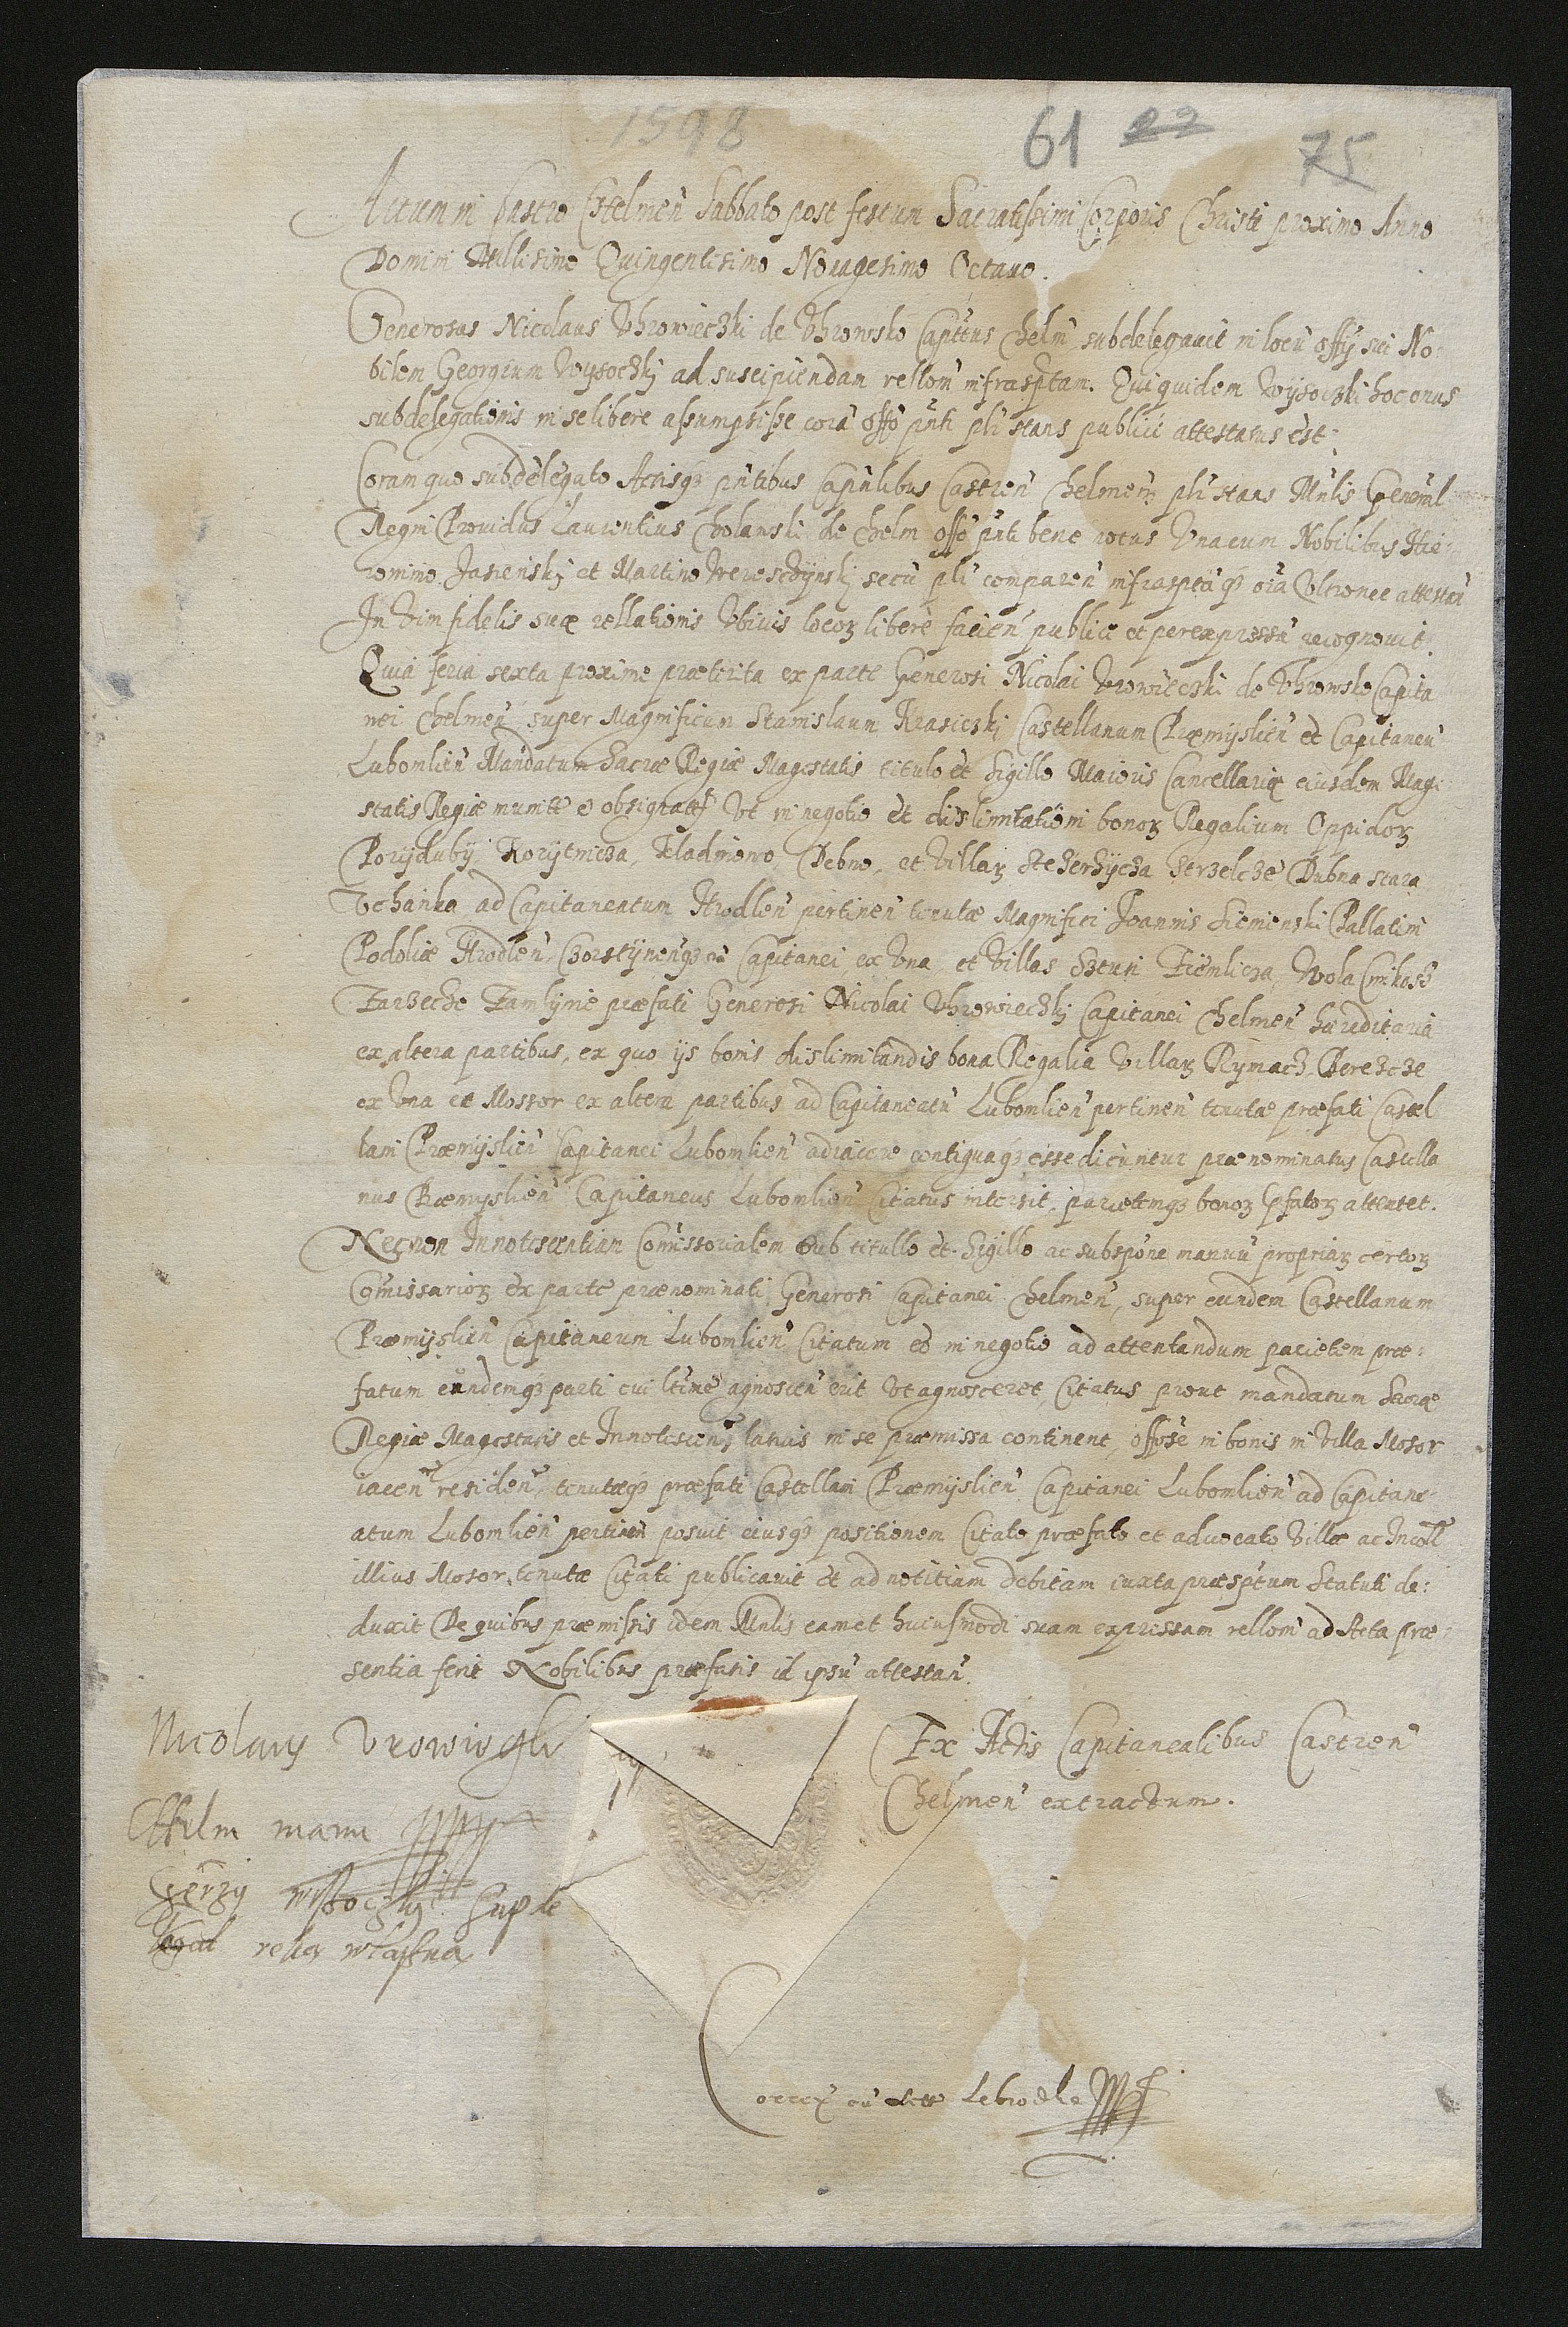 1598 61 22 75
Actum in Castro Chelmen̄ Sabbato post festum Sacratissimi Corporis Christi proximo Anno
Domini Millesimo Quingentesimo Nonagesimo Octauo.
Generosus Nicolaus Vhrowieczki de Vhrowsko Capittus Chelm̄ subdelegauit in locū offÿ sui No-
bilem Georgium Wysoczkj ad suscipiendam rellom̄ infrasptam. Qui quidem Wysoczki hoc onus
subdelegationis in se libere assumpsisse corā offo pn̄ti pl̄r stans publice attestatus est.
Coram quo subdelegato Actisqꝫ pn̄tibus Capn̄libus Castren̄ Chelmen̄ pl̄r stans Mn̄lis Gen̄rl
Regni Prouidus Laurentius Cholawski de Chelm offo pn̄ti bene notus Vnacum Nobilibus Hie-
ronimo Jasienskj et Martino Wereszczynskj secū pl̄r comparen̄ infrasptaqꝫ oīa Vltronee attestan̄
In Vim fidelis suæ rellationis Vbiuis locoꝝ libere facien̄ publice et per expressū recognouit.
Quia feria sexta proxime præterita ex parte Generosi Nicolai Vrowieczki de Vhrowsko Capita
nei Chelmen̄ super Magnificum Stanislaum Krasiczkj Castellanum Præmyslien̄ et Capitaneū
Lubomlien̄ Mandatum Sacræ Regiæ Magestatis titulo et Sigillo Maioris Cancellariæ eiusdem Mage
statis Regiæ munitt et obsignatt Vt in negotio et dislimitationi bonoꝝ Regalium Oppidoꝝ
Porÿduby, Korÿtnicza, Kladniowo Debno, et Villaꝝ Strzelcze Dubna stara
Vchanka ad Capitaneatum Hrodlen̄ pertinen̄ tenutæ Magnifici Joannis Siemienski Pallatini
Podoliæ Hrodlen̄ Capitanei ex Vna et Villas Wola
præfati Generosi Nicolai Vhrowieczkj Capitanei Chelmen̄ hæreditaria
ex altera partibus, ex quo ijs bonis dislimitandis bona Regalia Villaꝝ Rymacz, Berezcze
ex Vna et Mossor ex altera partibus ad Capitaneatū Lubomlien̄ pertinen̄ tenutæ præfati Castel
lani Præmyslien̄ Capitanei Lubomlien̄ adiacere contiguaqꝫ esse dicuntur prænominatus Castella
nus Præmyslien̄ Capitaneus Lubomlien̄ Citatus intersit, parietemqꝫ bonoꝝ pfatoꝝ attentet.
Necnon Innotiscentiam Comissorialem Sub titullo et Sigillo ac subspōne manuū propriaꝝ certoꝝ
Comissarioꝝ ex parte prænominati Generosi Capitanei Chelmen̄, super eundem Castellanum
Præmÿslien̄ Capitaneum Lubomlien̄ Citatum eo in negotio ad attentandum parietem præ-
fatum eundemqꝫ parti cui ltime agnoscen̄ erit Vt agnosceret, Citatus prout mandatum Sacræ
Regiæ Magestatis et Innotiscen̄ latius in se præmissa continent, offōse in bonis in Villa Mosor
iacen̄ residen̄, tenutæqꝫ præfati Castellani Præmÿslien̄ Capitanei Lubomlien̄ ad Capitane-
atum Lubomlien̄ pertinen̄ posuit eiusqꝫ positionem Citato præfato et aduocato Villæ ac Incoll
illius Mosor, tenutæ Citati publicauit et ad notitiam debitam iuxta præsptum Statuti de-
duxit De quibus præmissis idem Mn̄lis eamet huiusmodi suam expressam rellom̄ ad Acta præ-
sentia ferit Nobilibus præfatis id ipsū attestan̄.
Nicolaus Vrowieczki
Chelm manu
Gerzy Wysoczky Supde
legat reka własna
Ex Actis Capitanealibus Castren̄
Chelmen̄ extractum.
Correx̄ cū Actis